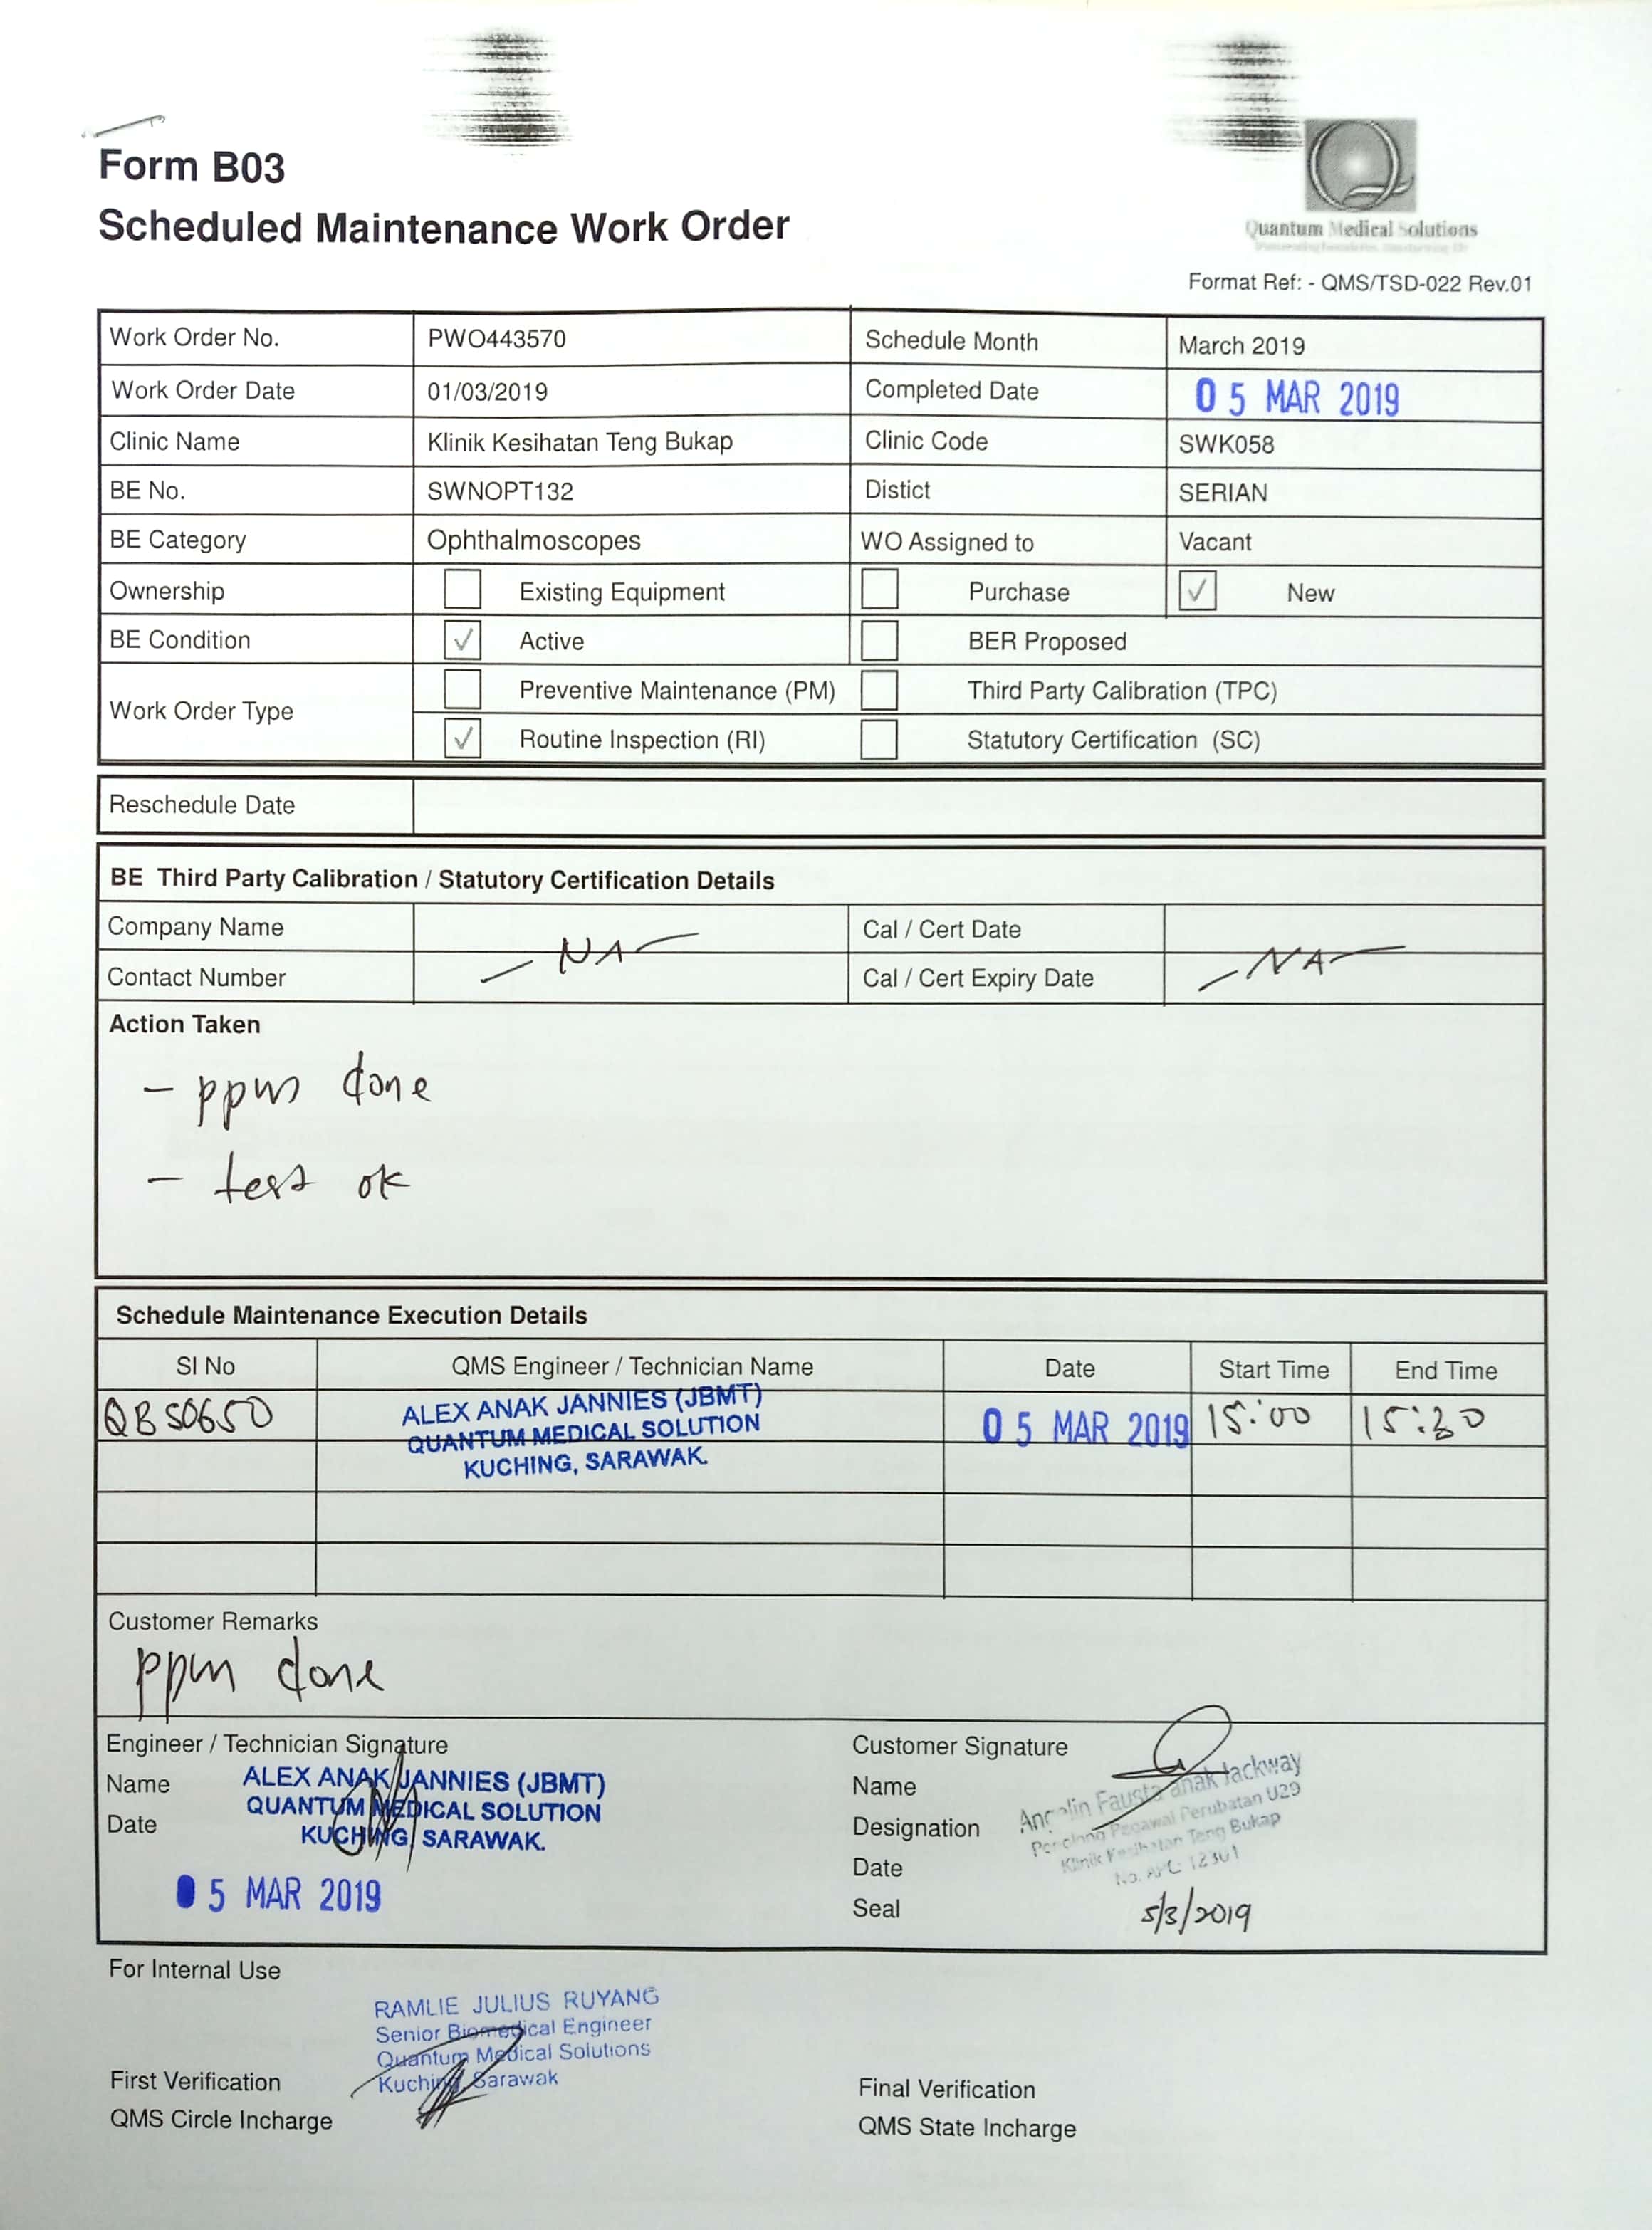 Form B03
Scheduled Maintenance Work Order
Quantum Medical Solutions
Format Ref: - QMS/TSD-022 Rev.01
Work Order No. PWO443570 Schedule Month March 2019
Work Order Date 01/03/2019 Completed Date 05 MAR 2019
Clinic Name Klinik Kesihatan Teng Bukap Clinic Code SWK058
BE No. SWNOPT132 Distict SERIAN
BE Category Ophthalmoscopes WO Assigned to Vacant
Ownership Existing Equipment Purchase ✓ New
BE Condition ✓ Active BER Proposed
Work Order Type
Preventive Maintenance (PM) Third Party Calibration (TPC)
✓ Routine Inspection (RI) Statutory Certification (SC)
Reschedule Date
BE Third Party Calibration / Statutory Certification Details
Company Name — NA — Cal / Cert Date — NA —
Contact Number Cal / Cert Expiry Date
Action Taken
- ppm done
- test ok
Schedule Maintenance Execution Details
SI No QMS Engineer / Technician Name Date Start Time End Time
QBS0650 ALEX ANAK JANNIES (JBMT) 05 MAR 2019 15:00 15:30
QUANTUM MEDICAL SOLUTION
KUCHING, SARAWAK.
Customer Remarks
ppm done
Engineer / Technician Signature
Name ALEX ANAK JANNIES (JBMT)
QUANTUM MEDICAL SOLUTION
Date KUCHING, SARAWAK.
5 MAR 2019
Customer Signature
Name Angelin Fausta anak Jackway
Designation Penolong Pegawai Perubatan U29
Klinik Kesihatan Teng Bukap
Date No. APC: 12301
Seal 5/3/2019
For Internal Use
RAMLIE JULIUS RUYANG
Senior Biomedical Engineer
Quantum Medical Solutions
Kuching, Sarawak
First Verification
QMS Circle Incharge
Final Verification
QMS State Incharge